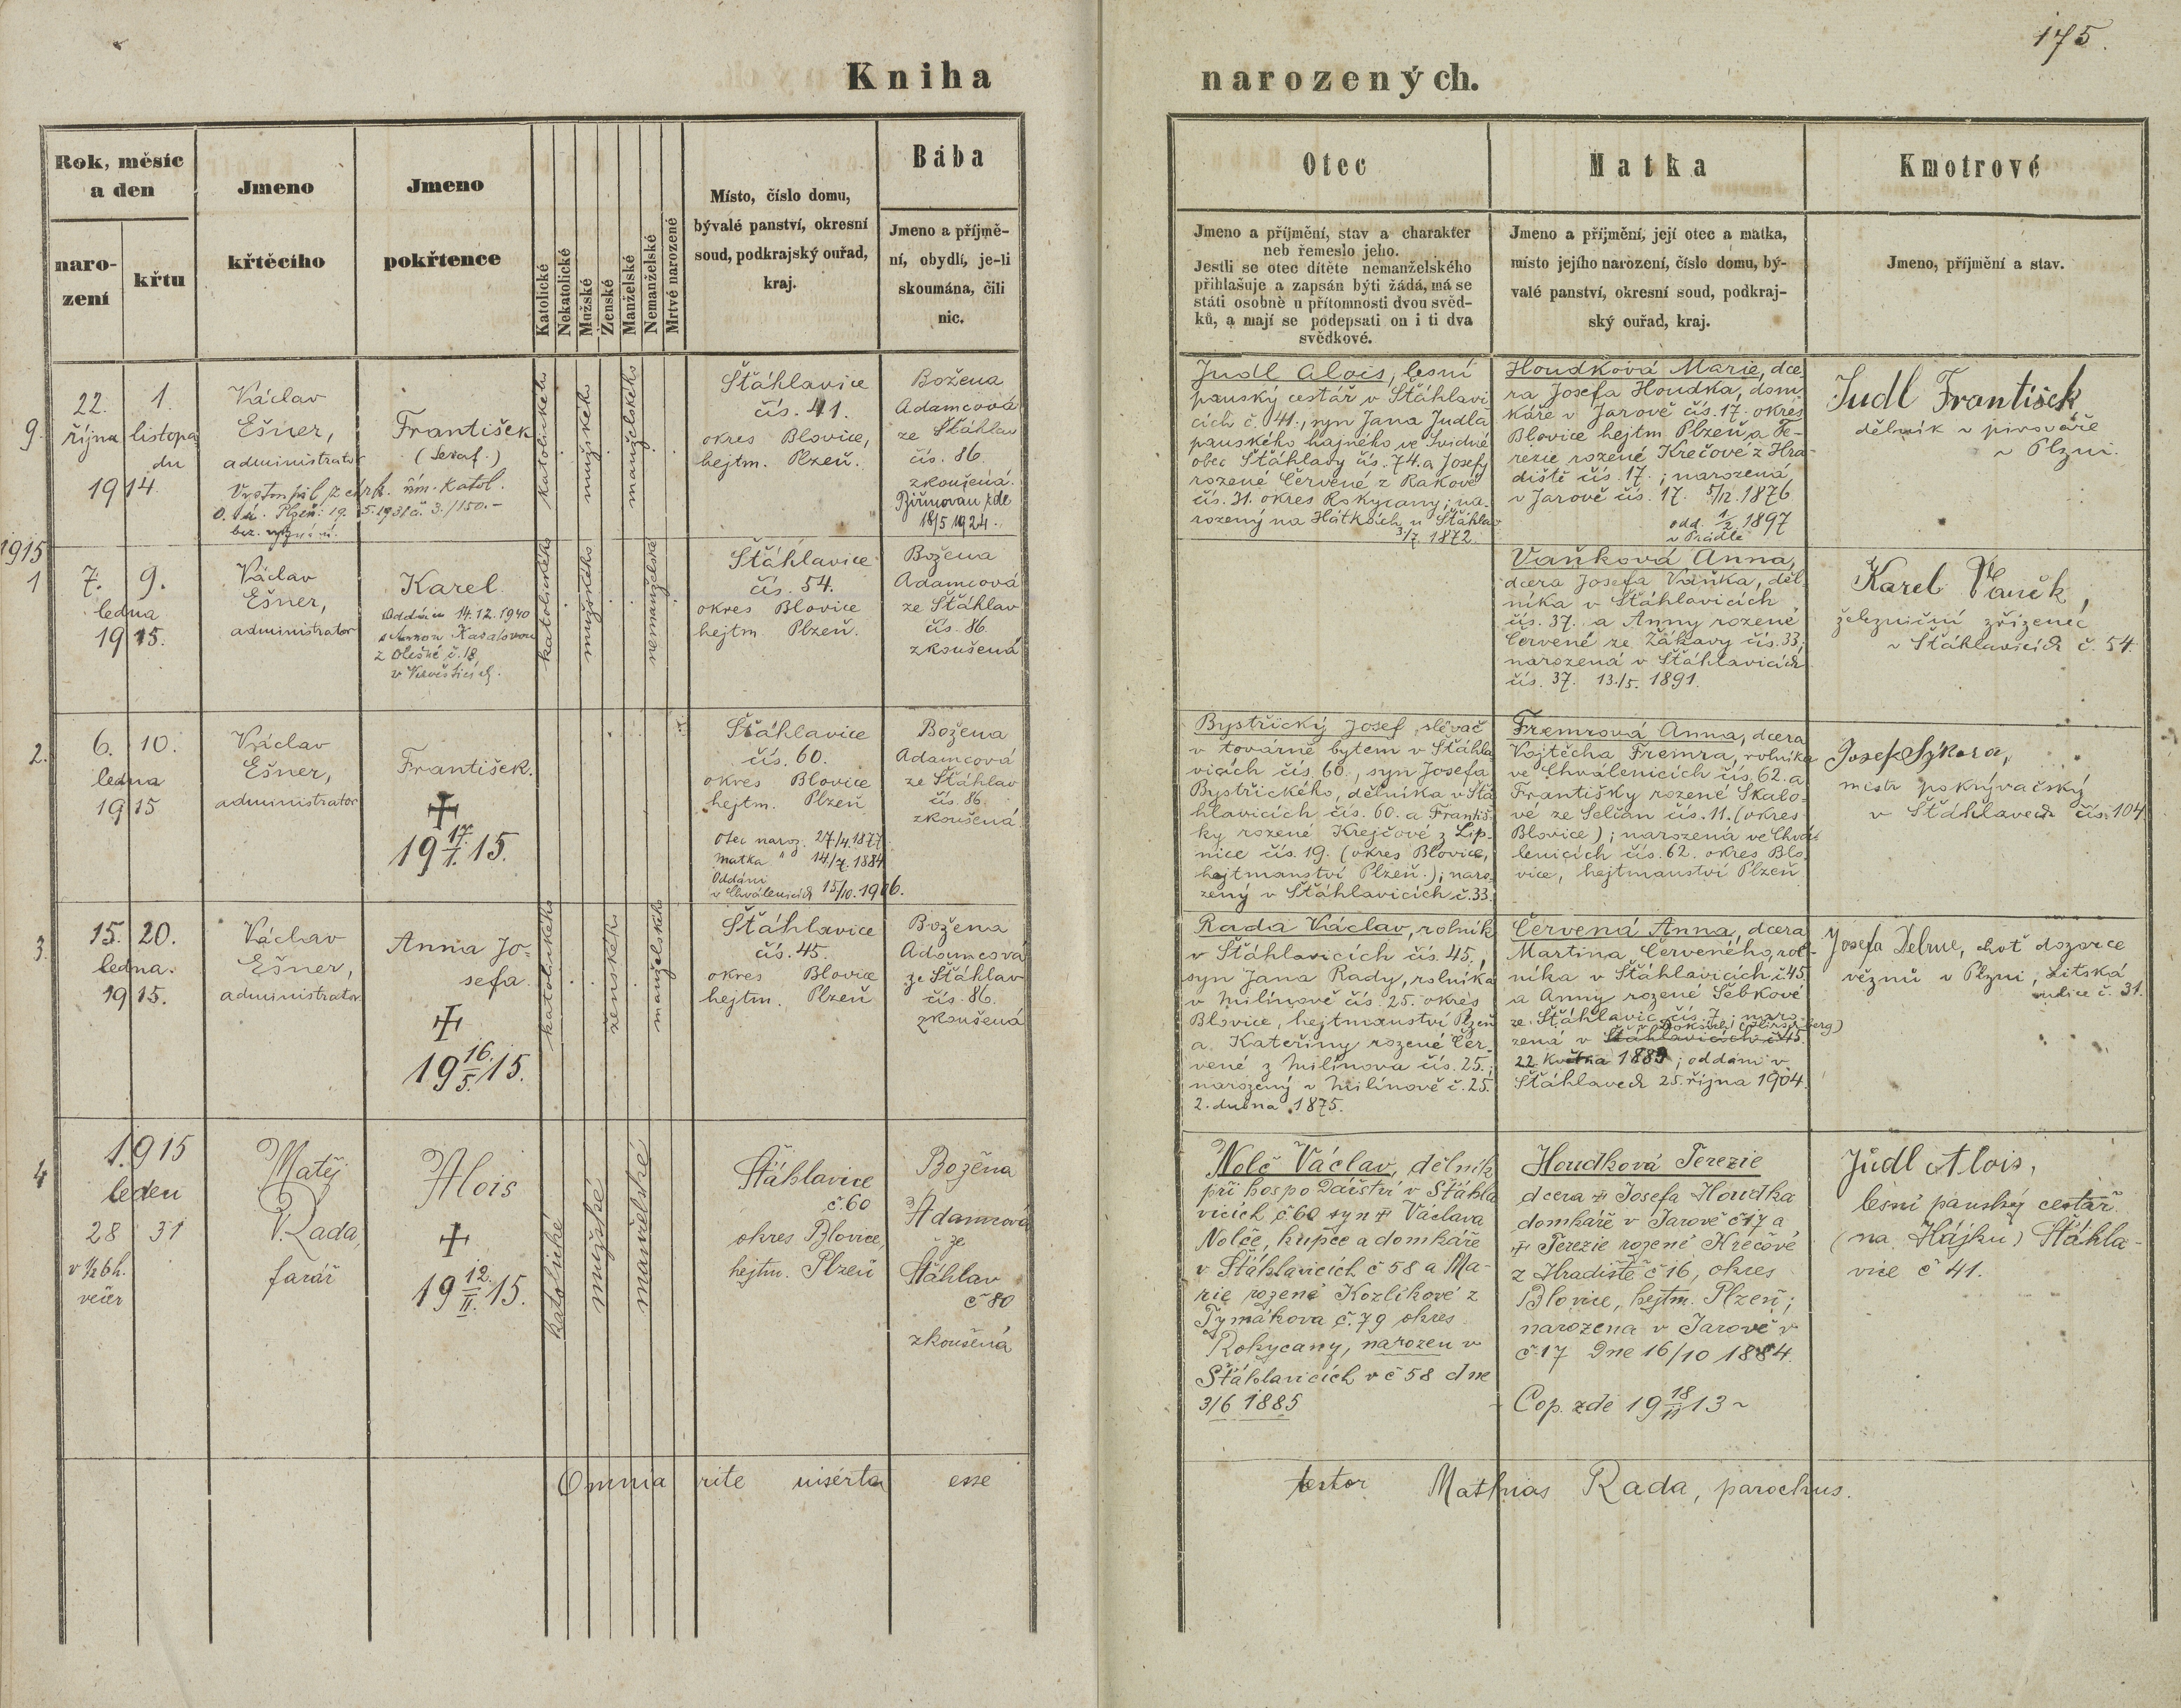 175.
Kniha narozených.
Rok, měsíc
a den
naro-
zení
křtu
Jmeno
křtěcího
Jmeno
pokřtence
Katolické
Nekatolické
Mužské
Ženské
Manželské
Nemanželské
Mrtvě narozené
Místo, číslo domu,
bývalé panství, okresní
soud, podkrajský ouřad,
kraj.
Bába
Jmeno a příjmě-
ní, obydlí, je-li
skoumána, čili
nic.
Otec
Jmeno a příjmění, stav a charakter
neb řemeslo jeho.
Jestli se otec dítěte nemanželského
přihlašuje a zapsán býti žádá, má se
státi osobně u přítomnosti dvou svěd-
ků, a mají se podepsati on i ti dva
svědkové.
Matka
Jmeno a příjmění, její otec a matka,
místo jejího narození, číslo domu, bý-
valé panství, okresní soud, podkraj-
ský ouřad, kraj.
Kmotrové
Jmeno, příjmění a stav.
9.
22. 1.
října listopa
du
1914.
Václav
Ešner,
administrator
František
(Seraf.)
Vystoupil z círk. řím. katol.
O. Plzeň: 19. 5. 1931 č. 3./150.-
bez vyznání.
katolického
mužského
manželského
Šťáhlavice
čís. 41.
okres Blovice,
hejtm. Plzeň.
Božena
Adamcová
ze Šťáhlav
čís. 86.
zkoušená.
Biřmován zde
18/5 1924.
Judl Alois, lesní
panský cestář v Šťáhlavi
cích č. 41., syn Jana Judla
panského hajného ve Svidné
obec Šťáhlavy čís. 74. a Josefy
rozené Červené z Rakové
čís. 31. okres Rokycany; na-
rozený na Hátkách u Šťáhlav
3/7. 1872.
Houdková Marie, dce-
ra Josefa Houdka, dom
káře v Jarově čís. 17. okres
Blovice hejtm. Plzeň a Te-
rezie rozené Krečové z Hra-
diště čís. 17.; narozená
v Jarově čís. 17. 5/12. 1876
odd. 1/2 1897
v Prádle
Judl František
dělník v pivováře
v Plzni.
1915
1
7. 9.
ledna
1915.
Václav
Ešner,
administrator
Karel
Oddán 14.12.1940
s Annou
z č. 18
katolického
mužského
nemanželské
Šťáhlavice
čís. 54.
okres Blovice
hejtm. Plzeň.
Božena
Adamcová
ze Šťáhlav
čís. 86.
zkoušená
Vaňková Anna,
dcera Josefa Vaňka, děl-
níka v Šťáhlavicích
čís. 37. a Anny rozené
Červené ze Žákavy čís. 33;
narozená v Šťáhlavicích
čís. 37. 13./5. 1891.
Karel Vaněk,
železniční zřízenec
v Šťáhlavicích č. 54.
2.
6. 10.
ledna
1915
Václav
Ešner,
administrator
František.
19 17./1. 15.
Šťáhlavice
čís. 60.
okres Blovice
hejtm. Plzeň
Otec naroz. 27/4.1877.
Matka " 14./7. 1884
Oddáni
v Chválenicích 15/10. 1906.
Božena
Adamcová
ze Šťáhlav
čís. 86
zkoušená.
Bystřický Josef, slévač
v továrně bytem v Šťáhla
vicích čís. 60., syn Josefa
Bystřického, dělníka v Šťá
hlavicích čís. 60. a Františ-
ky rozené Krejčové z Lip-
nice čís. 19. (okres Blovice,
hejtmanství Plzeň.); naro-
zený v Šťáhlavicích č. 33.
Fremrová Anna, dcera
Vojtěcha Fremra, rolníka
ve Chválenicích čís. 62. a
Františky rozené Skalo-
vé ze Selčan čís. 11. (okres
Blovice); narozená ve Chvá-
lenicích čís. 62. okres Blo-
vice, hejtmanství Plzeň
Josef Sýkora,
mistr pokrývačský
v Šťáhlavech čís. 104.
3.
15. 20.
ledna.
1915.
Václav
Ešner,
administrator
Anna Jo-
sefa.
19 16./5. 15.
katolického
ženského
manželského
Šťáhlavice
čís. 45.
okres Blovice
hejtm. Plzeň
Božena
Adamcová
ze Šťáhlav
čís. 86.
zkoušená
Rada Václav, rolník
v Šťáhlavicích čís. 45.,
syn Jana Rady, rolníka
v Milínově čís. 25. okres
Blovice, hejtmanství Plzeň
a Kateřiny rozené Čer-
vené z Milínova čís. 25.;
narozený v Milínově č. 25.
2. dubna 1875.
Červená Anna, dcera
Martina Červeného, rol-
níka v Šťáhlavicích č. 45
a Anny rozené Šebkové
ze Šťáhlavic čís. 7; naro-
zená v Šťáhlavicích č. 45.
22. května 1883; oddáni v
Šťáhlavech 25. října 1904.
Josefa choť dozorce
věznů v Plzni,
ulice č. 31.
4
1915
leden
28 31
v ½6 h.
večer
Matěj
Rada,
farář
Alois
19 12./II. 15.
katolické
mužské
manželské
Šťáhlavice
č 60
okres Blovice,
hejtm. Plzeň
Božena
Adamcová
ze
Šťáhlav
č 80
zkoušená
Nolč Václav, dělník
při hospodářství v Šťáhla
vicích č. 60 syn Václava
Nolče, kupce a domkáře
v Šťáhlavicích č 58 a Ma-
rie rozené Kozlíkové z
Tymákova č. 79 okres
Rokycany, narozen v
Šťáhlavicích v č 58 dne
3/6 1885
Houdková Terezie
dcera Josefa Houdka
domkáře v Jarově č 17 a
Terezie rozené Krečové
z Hradiště č 16, okres
Blovice, hejtm. Plzeň;
narozena v Jarově v
č. 17 dne 16/10 1884.
Cop. zde 19 18/II 13
Júdl Alois,
lesní panský cestář
(na Hájku) Šťáhla-
vice č 41.
Omnia rite inserta esse testor Mathias Rada, parochus.